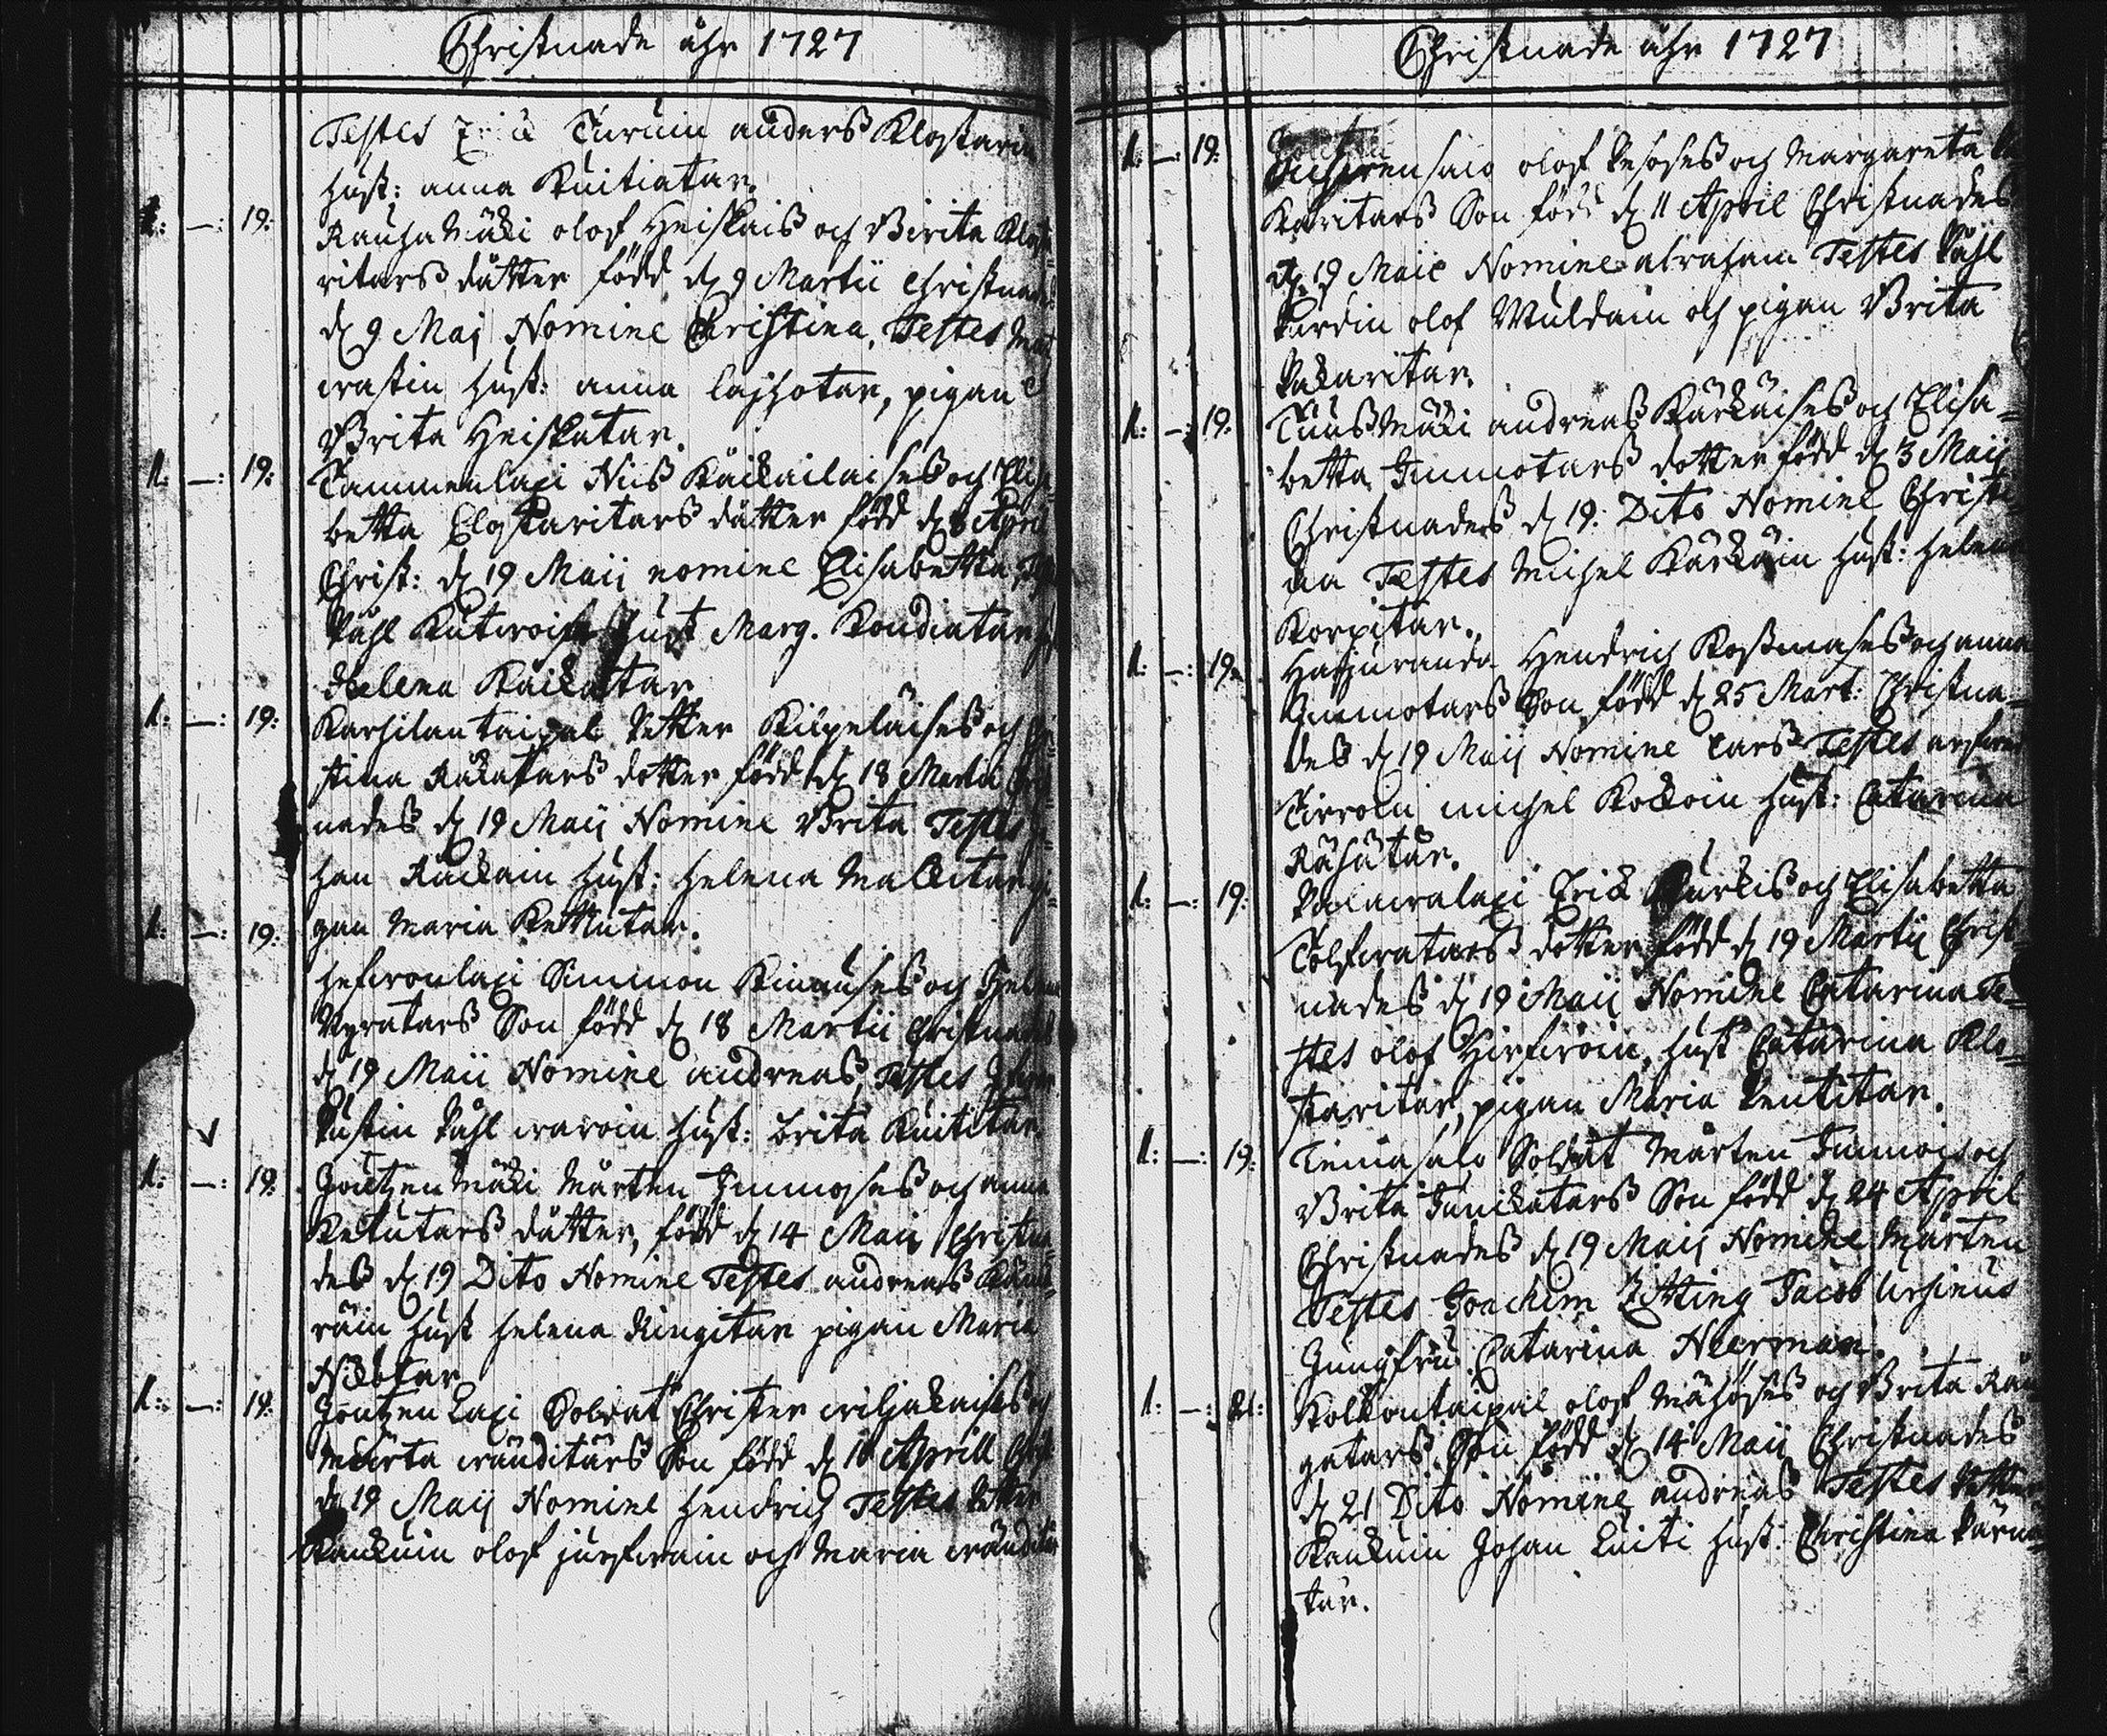 Christnade åhr 1727
Testes Erick Turuin anders Klostarin
hust: anna Kuitiatar.
1: —: 19: Rauhamäki olof Heiskais och Birita Klosta=
ritars dåtter född d 9 Martii Christnades
d 9 Maj Nomine Christina, Testes
hust: anna lajhotar, pigan
Brita Heiskatar.
1: —: 19: Tammenlaxi Nils Käickäiläises och Elisa=
betta Clostaritars dåtter född d 8 April
Christ: d 19 Maij nomine Elisabetta,
Påhl hust Marg. Kondiatar
Helena
1: —: 19: Karsilantaipal Petter Kilpeläises och
stina Räkätars dotter född d 18 Martii
nades d 19 Maij Nomine Brita Testes
han Räckäin hust: Helena Mackitar
1: —: 19: gan Maria Kettutar.
Simmon Kinnuses och
Son född d 18 Martii Christnades
d 19 Maii Nomine andreas, Testes
Pustin Påhl waroin hust: brita Kuititar.
1: —: 19: Joutzenmäki Mårten Immoses och anna
Ketutars dåtter, född d 14 Maij Christna=
des d 19 Dito Nomine Testes andreas
räin hust helena Ringitar pigan Maria
1: —: 19: Joutzen Laxi Soldat Christer wiljakaises och
Märta wänditärs Son född d 10 Aprill
d 19 Maij Nomine Hendrich Testes Petter
Kaukuin olof och Maria
Christnade åhr 1727
1: —: 19: olof Pesoses och Margareta
Karitars Son född d 11 April Christnades
d. 19 Maie Nomine abraham Testes Påhl
Purdin olof Muldain och pigan Brita
Pakaritar.
1: —: 19: Tuusmäki andreas Kärkäises och Elisa=
betta Immotars dotter född d 3 Maij
Christnades d 19: Dito Nomine Christi
na Testes Michel Kärkäin hust: helena
Korpitar.
1: —: 19. Harjuranda Hendrich Kosmases och anna
Immotars Son född d 25 Mart: Christna=
des d 19 Maij Nomine Lars Testes
Tirroin michel Kockoin hust: Catarina
Räsätär.
1: —: 19: Erick Kurkis och Elisabetta
Tolfwatars dotter född d 19 Martij Christ=
nades d 19 Maij Nomine Catarina Te=
stes olof Hirfwoin, hust Catarina Klo=
staritar, pigan Maria Pentitar.
1: —: 19: Soldat Mårten Immois och
Brita Junickatars Son född d 24 April
Christnades d 19 Maij Nomine Mårten
Testes Joachim Zitting Jacob Ursinus
Jungfru Catarina Neerman.
1: —: 21: Kolkontaipal olof Mähöses och Brita Rän
gatars Son född d 14 Maij Christnades
d 21 Dito Nomine andreas Testes Petter
Kaukuin Johan Luiti hust: Christina Pärnä=
tär.